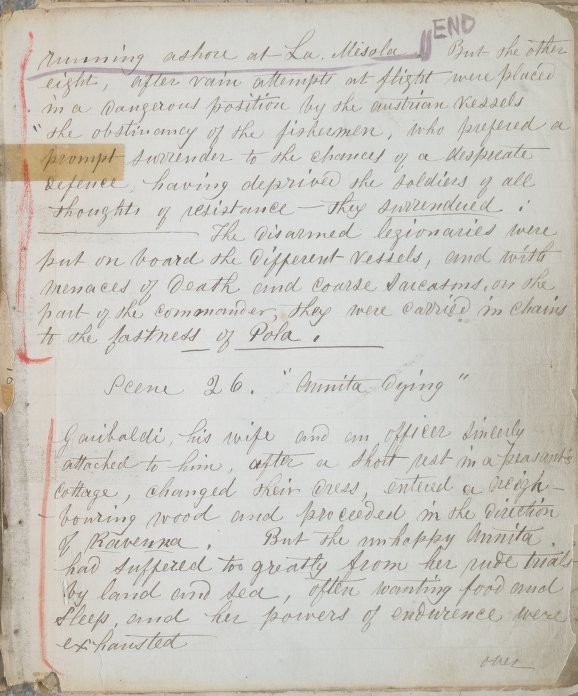 running ashore at La Mesola. END But the other
eight, after vain attempts at flight were placed
in a dangerous position by the austrian vessels
"the obstinancy of the fishermen, who prefered a
prompt surrender to the chances of a desperate
defence, having deprived the soldiers of all
thoughts of resistance – they surrendered.
The disarmed legionaries were
put on board the different vessels, and with
menaces of Death and coarse sarcasms, on the
part of the commander, they were carried in chains
to the fastness of Pola.
Scene 26. "Annita Dying"
Garibaldi, his wife and an officer sincerly
attached to him, after a short rest in a peasant's
cottage, changed their dress, entered a neigh-
bouring wood and proceeded in the direction
of Ravenna. But the unhappy Annita
had suffered too greatly from her rude trials
by land and sea, often wanting food and
sleep, and her powers of endurence were
exhausted
over